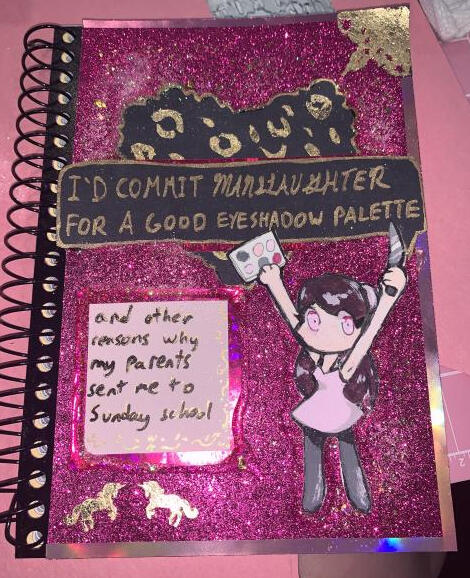 I'D COMMIT MANSLAUGHTER
FOR A GOOD EYESHADOW PALETTE
and other
reasons why
my parents
sent me to
Sunday school